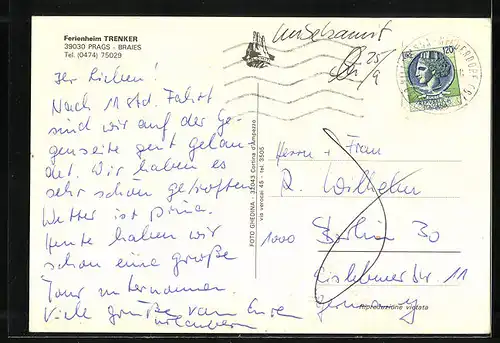 Ferienheim TRENKER
39030 PRAGS - BRAIES
Tel. (0474) 75029
Ihr Lieben!
Nach 11 Std. Fahrt
sind wir auf der Ge-
genseite gut gelan
det. Wir haben es
sehr schön getroffen
Wetter ist prima.
Heute haben wir
schon eine große
Tour unternommen.
Viele Grüße von Euren
Urlaubern.
FOTO GHEDINA - 32043 Cortina d'Ampezzo
via verocai 45 - tel. 3505
unbekannt
25/9
120
Herrn + Frau
R. Wilhelm
1000 Berlin 30
Eislebener Str. 11
Germany
Riproduzione vietata